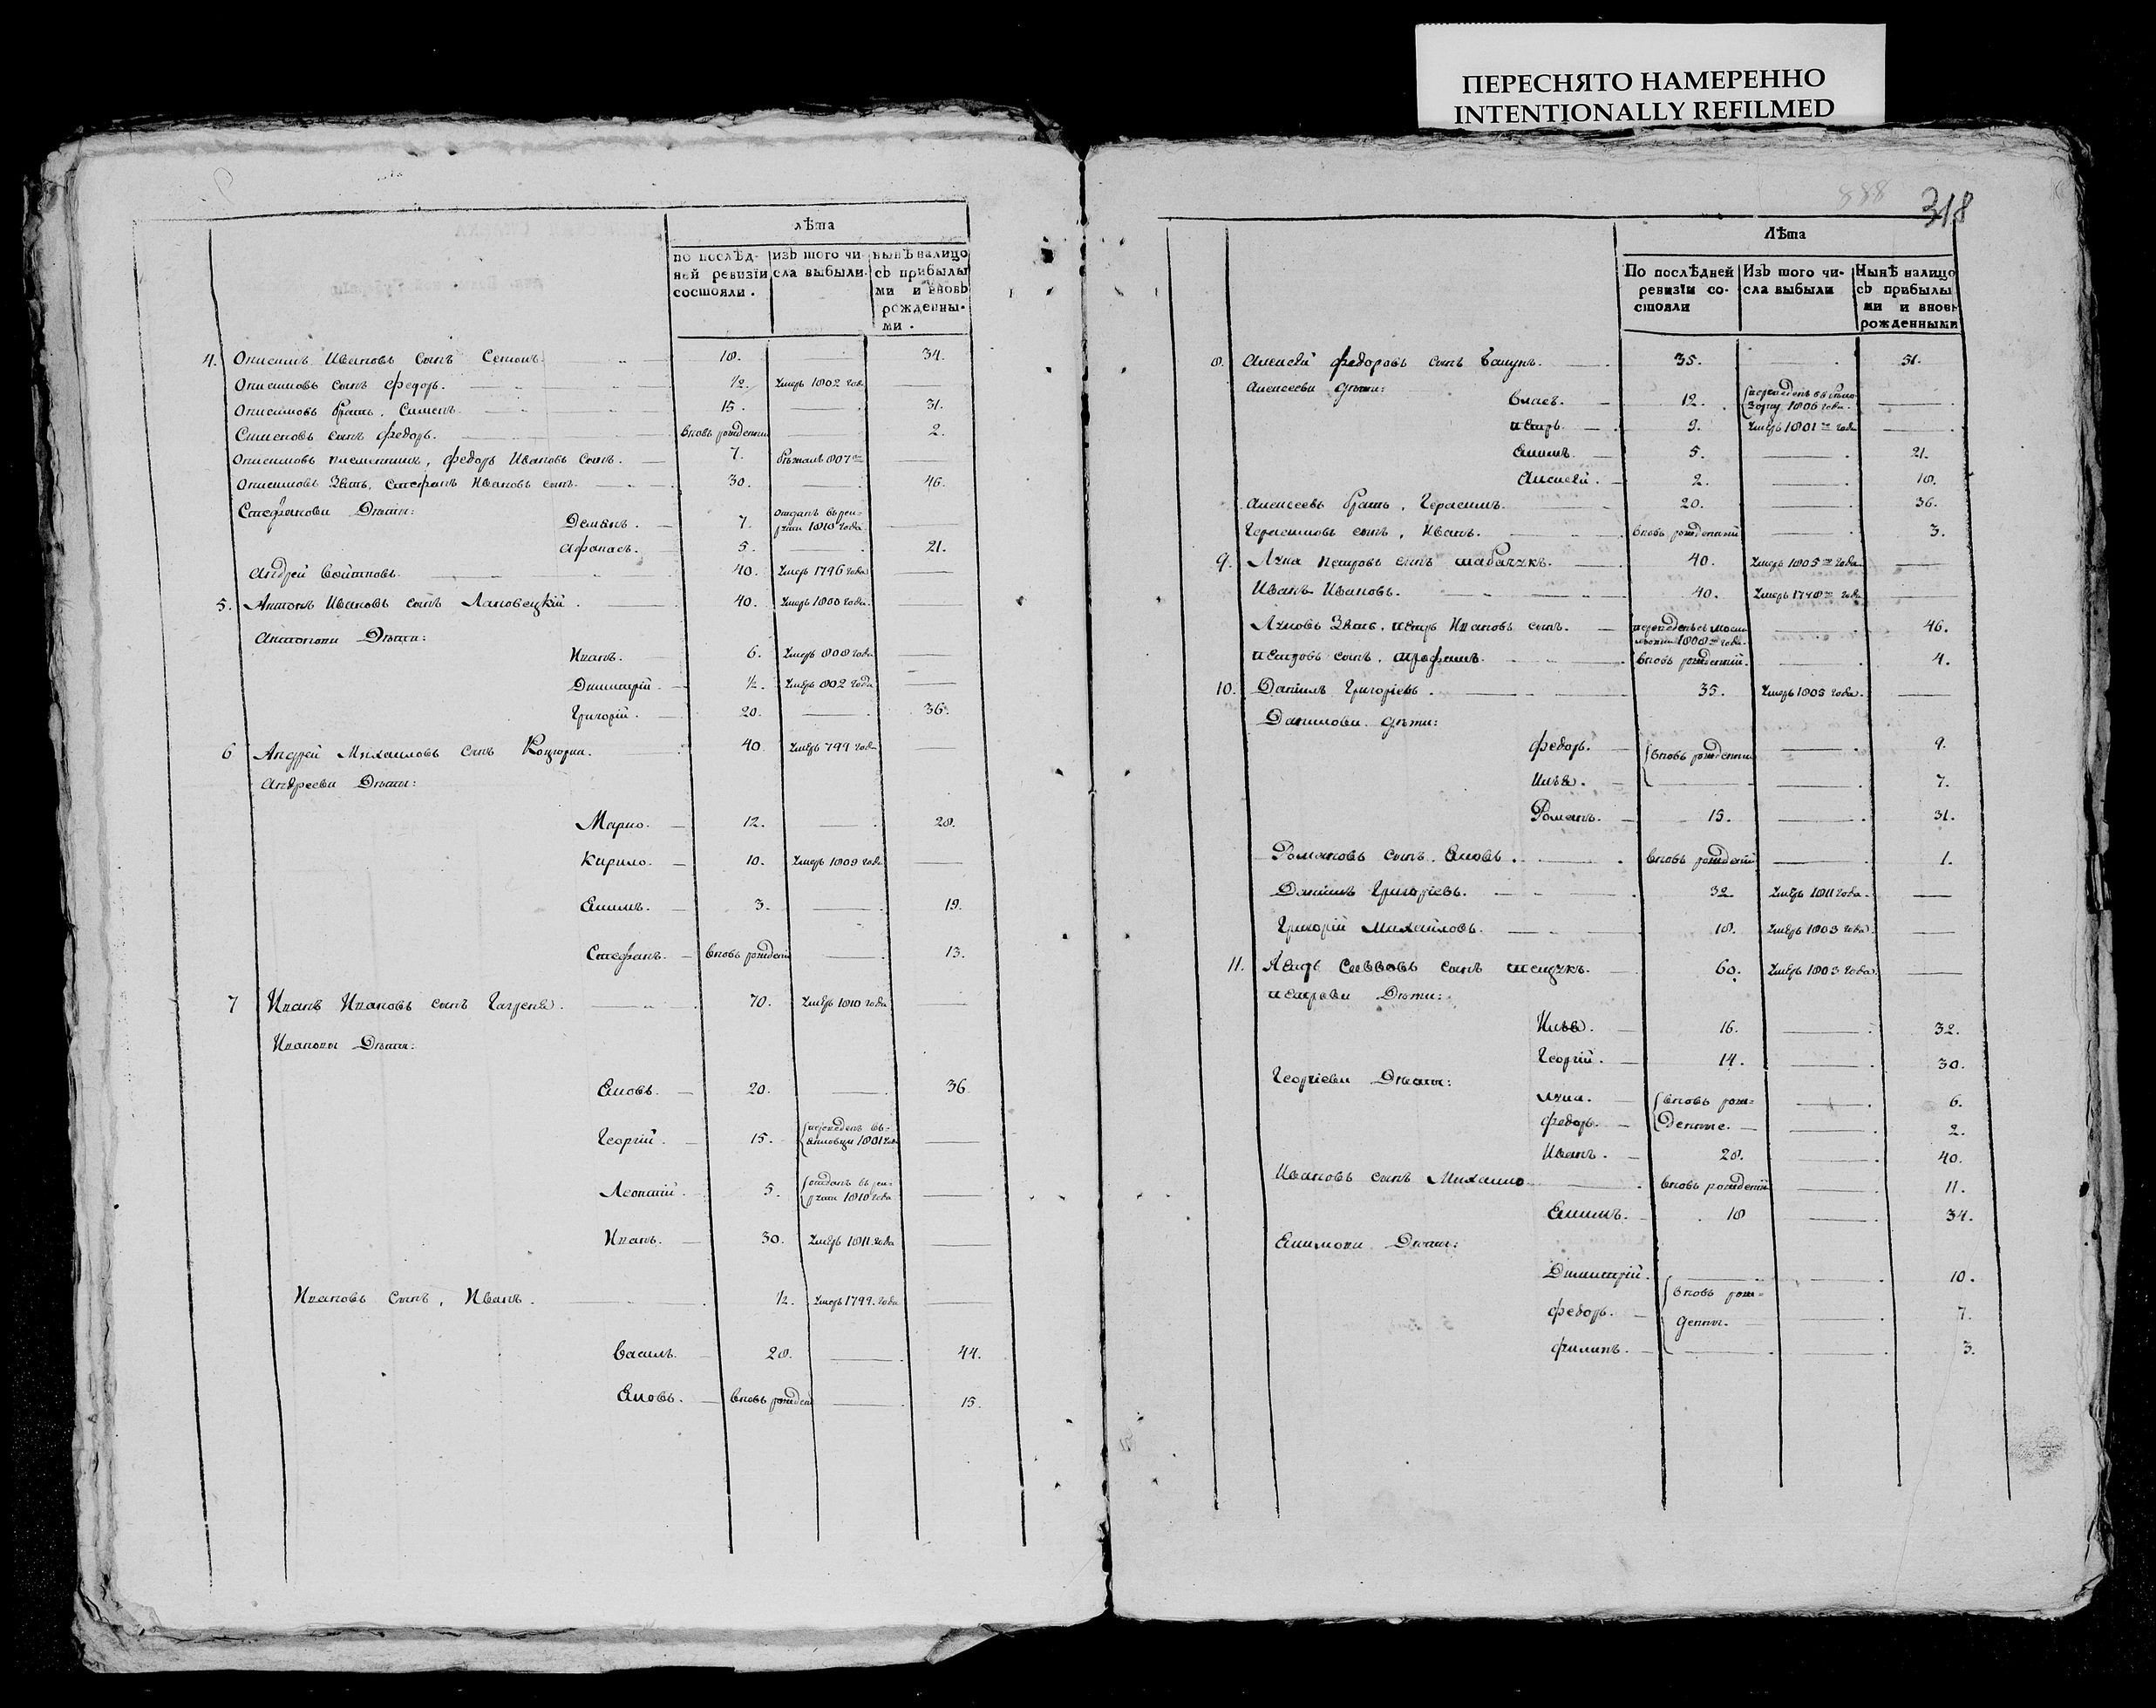 ПЕРЕСНЯТО НАМЕРЕННО
INTENTIONALLY REFILMED
лѣта
по послѣд- изъ того чи- нынѣ налицо
ней ревизіи сла выбыли. съ прибылы
состояли. ми и вновь
рожденны-
ми.
4. Онисимъ Ивановъ сынъ 18. 34.
Онисимовъ сынъ Федоръ. ½. Умеръ 1802 года
Онисимовъ братъ, Сименъ. 15. 31.
Сименовъ сынъ Федоръ. вновь рожденный 2.
Онисимовъ племенникъ, Федоръ Ивановъ сынъ. 7. бѣжалъ 807
Онисимовъ Зять, Стефанъ Ивановъ сынъ. 30. 46.
Стефановы Дѣти:
Демянъ. 7. отданъ въ рек-
руты 1810 года
Афанасъ. 5. 21.
Андрей 40. Умеръ 1796 года
5. Антонъ Ивановъ сынъ Лановецкій. 40. Умеръ 1800 года.
Антоновы Дѣти:
Иванъ. 6. Умеръ 808 года
Димитрій. ½. Умеръ 802 года
Григорій. 20. 36.
6 Андрей Михайловъ сынъ 40. Умеръ 799 года
Андреевы Дѣти:
Марко. 12. 28.
Кирило. 10. Умеръ 1809 года
Екимъ. 3. 19.
Стефанъ. вновь рожденый 13.
7 Иванъ Ивановъ сынъ 70. Умеръ 1810 года
Ивановы Дѣти:
Яковъ. 20. 36.
Георгій. 15. переведенъ въ
1801 года
Леонтій. 5. отданъ въ рек-
руты 1810 года
Иванъ. 30. Умеръ 1811. года
Ивановъ сынъ, Иванъ. ½. Умеръ 1799. года
Василь. 28. 44.
Яковъ. вновь рожден 15.
318
Лѣта
По послѣдней Изъ того чи- Нынѣ налицо
ревизіи со- сла выбыли съ прибылы
стояли ми и вновь
рожденными
8. Алексѣй Федоровъ сынъ 35. 51.
Алексѣевы дѣти:
Власъ. 12. переведенъ въ
1806 года.
Петръ. 9. Умеръ 1801 года
Екимъ. 5. 21.
Алексѣй. 2. 18.
Алексѣевъ братъ, Герасимъ. 20. 36.
Герасимовъ сынъ, Иванъ. вновь рожденный 3.
9. Лука Петровъ сынъ 40. Умеръ 1805 года
Иванъ Ивановъ. 40. Умеръ года
Луковъ Зять, Петръ Ивановъ сынъ. переведенъ 46.
1808 года
Петровъ сынъ, Трофимъ. вновь рожденній. 4.
10. Данилъ Григоріевъ. 35. Умеръ года.
Даниловы дѣти:
Федоръ. вновь рожденны 9.
Илья. 7.
Романъ. 15. 31.
Романовъ сынъ, Яковъ. вновь рожденій 1.
Данилъ Григоріевъ. 32 Умеръ 1811 года.
Григорій Михайловъ. 18. Умеръ 1803 года.
11. Петръ сынъ 60. Умеръ 1803 года.
Петровы Дѣти:
Илья. 16. 32.
Георгій. 14. 30.
Георгіевы Дѣти:
Лука. вновь рож- 6.
Федоръ. Денные. 2.
Иванъ. 28. 40.
Ивановъ сынъ Михайло вновь рожденій 11.
Екимъ. 18 34.
Екимовы Дѣти:
Димитрій. 10.
вновь рож-
Федоръ. денны. 7.
Филипъ. 3.